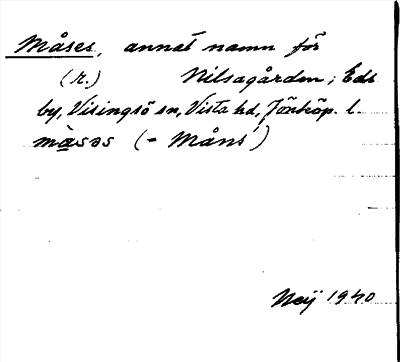 Måses, annat namn för
(r.) Nilsagården; Eds
by, Visingsö sn, Vista hd, Jönköp. l.
måsəs (- Måns')
Neij 1940